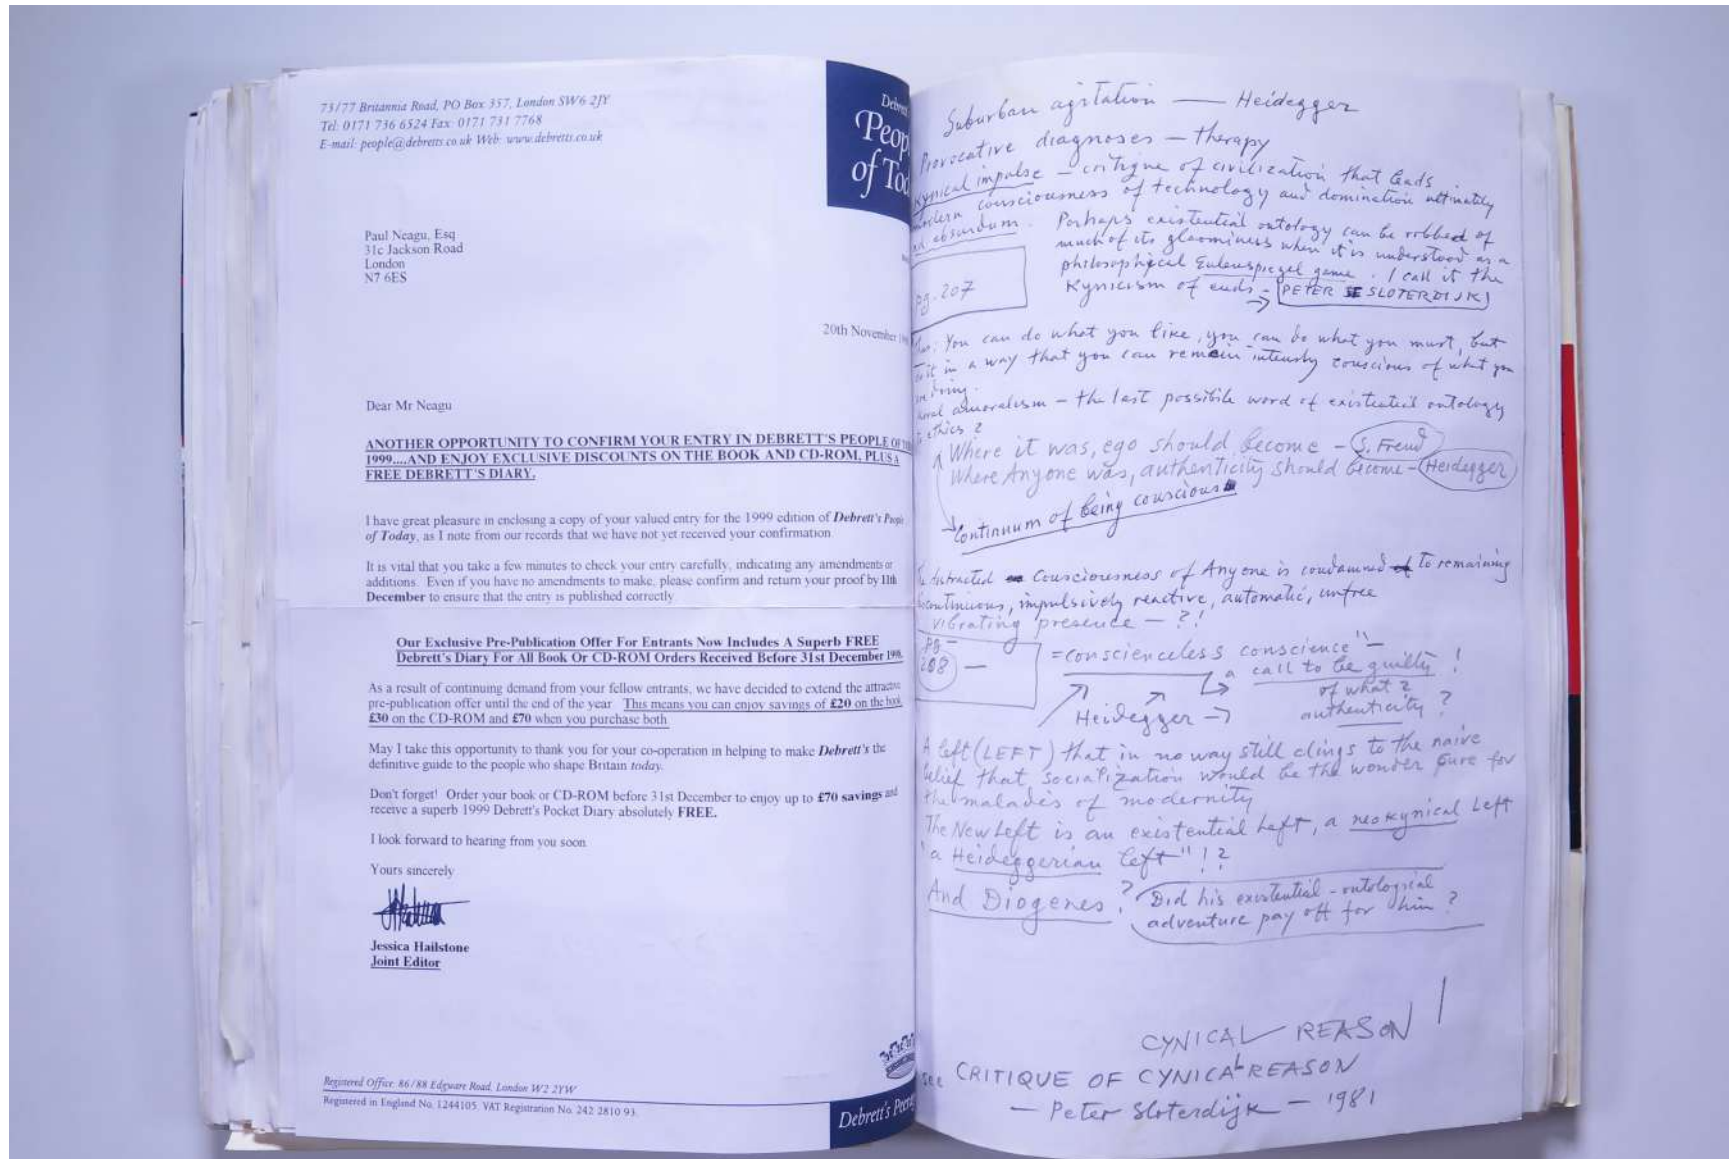 73/77 Britannia Road, PO Box 357, London SW6 2JY
Tel: 0171 736 6524 Fax: 0171 731 7768
E-mail: people@debretts.co.uk Web: www.debretts.co.uk
Debrett
Peop
of Tod
Paul Neagu, Esq
31c Jackson Road
London
N7 6ES
20th November
Dear Mr Neagu
ANOTHER OPPORTUNITY TO CONFIRM YOUR ENTRY IN DEBRETT'S PEOPLE OF
1999....AND ENJOY EXCLUSIVE DISCOUNTS ON THE BOOK AND CD-ROM, PLUS A
FREE DEBRETT'S DIARY.
I have great pleasure in enclosing a copy of your valued entry for the 1999 edition of Debrett's People
of Today, as I note from our records that we have not yet received your confirmation
It is vital that you take a few minutes to check your entry carefully, indicating any amendments or
additions. Even if you have no amendments to make, please confirm and return your proof by 11th
December to ensure that the entry is published correctly
Our Exclusive Pre-Publication Offer For Entrants Now Includes A Superb FREE
Debrett's Diary For All Book Or CD-ROM Orders Received Before 31st December 1998.
As a result of continuing demand from your fellow entrants, we have decided to extend the attractive
pre-publication offer until the end of the year. This means you can enjoy savings of £20 on the book,
£30 on the CD-ROM and £70 when you purchase both
May I take this opportunity to thank you for your co-operation in helping to make Debrett's the
definitive guide to the people who shape Britain today.
Don't forget! Order your book or CD-ROM before 31st December to enjoy up to £70 savings and
receive a superb 1999 Debrett's Pocket Diary absolutely FREE.
I look forward to hearing from you soon
Yours sincerely
Jessica Hailstone
Joint Editor
Registered Office: 86/88 Edgware Road, London W2 2YW
Registered in England No. 1244105. VAT Registration No. 242 2810 93
Debrett's Peer
Suburban agitation — Heidegger
Provocative diagnoses — therapy
Kynical impulse — critique of civilization that leads
modern consciousness of technology and domination ultimately
ad absurdum. Perhaps existential ontology can be robbed of
much of its gloominess when it is understood as a
philosophical Eulenspiegel game. I call it the
Kynicism of ends – (PETER SLOTERDIJK)
pg. 207
You can do what you like, you can do what you must, but
do it in a way that you can remain intensely conscious of what you
are doing.
moral amoralism – the last possibile word of existential ontology
to ethics?
Where it was, ego should become – S. Freud
Where Anyone was, authenticity should become – Heidegger
Continuum of being conscious
The distracted Consciousness of Anyone is condamned to remaining
discontinuous, impulsively reactive, automatic, unfree
vibrating presence – ?!
pg –
208 –
= conscienceless conscience" –
a call to be guilty !
of what ?
Heidegger → authenticity ?
A left (LEFT) that in no way still clings to the naive
belief that socialization would be the wonder cure for
the maladies of modernity
The New Left is an existential Left, a neokynical Left
"a Heideggerian left" !?
And Diogenes ? Did his existential-ontological
adventure pay off for him ?
CYNICAL REASON
see CRITIQUE OF CYNICAL REASON
— Peter Sloterdijk — 1981